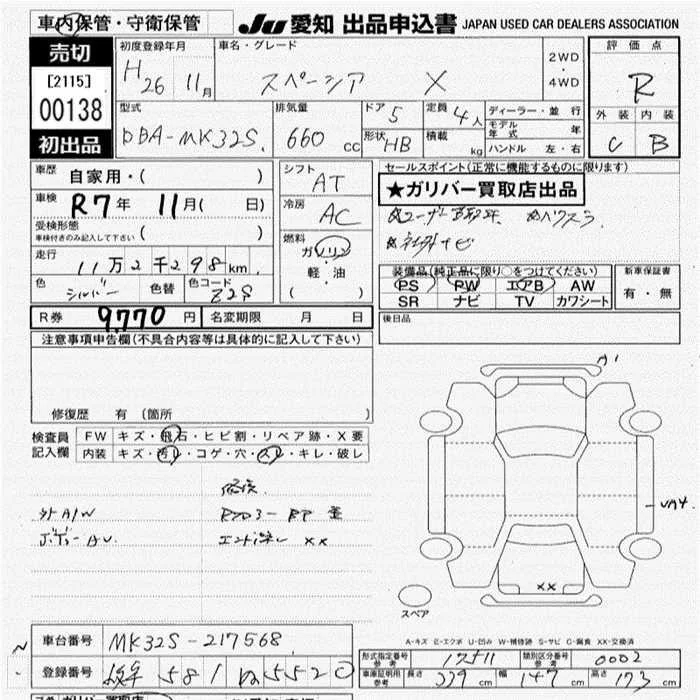 車内保管・守衛保管
JU 愛知 出品申込書 JAPAN USED CAR DEALERS ASSOCIATION
売切
[2115]
00138
初出品
初度登録年月
H26 11月
車名・グレード
スペーシア X
2WD
・
4WD
評価点
R
外装 内装
C B
型式
DBA-MK32S
排気量
660 cc
ドア 5
形状 HB
定員 4人
積載 kg
ディーラー・並行
モデル年式 年
ハンドル 左・右
車歴 自家用・( )
車検 R7年 11月( 日)
受検形態
車検付きのみ記入して下さい ( )
走行
11万2千298km
色 シルバー 色替 色コード Z2S
シフト
AT
冷房
AC
燃料
ガソリン
・
軽・油
( )
セールスポイント(正常に機能するものに限ります)
★ガリバー買取店出品
装備品(純正品に限り○をつけてください)
PS PW エアB AW
SR ナビ TV カワシート
新車保証書
有・無
R券 9,770円 名変期限 月 日
後日品
注意事項申告欄(不具合内容等は具体的に記入して下さい)
修復歴 有 (箇所 )
検査員
記入欄
FW キズ・飛石・ヒビ割・リペア跡・X要
内装 キズ・汚レ・コゲ・穴・スレ・キレ・破レ
A1
UA4
XX
スペア
A-キズ E-エクボ U-凹み W-補修跡 S-サビ C-腐食 XX-交換済
車台番号 MK32S-217568
登録番号
型式指定番号
参考
17511
類別区分番号
参考
0002
車庫証明用
参考
長さ 339 cm 幅 147 cm 高さ 173 cm